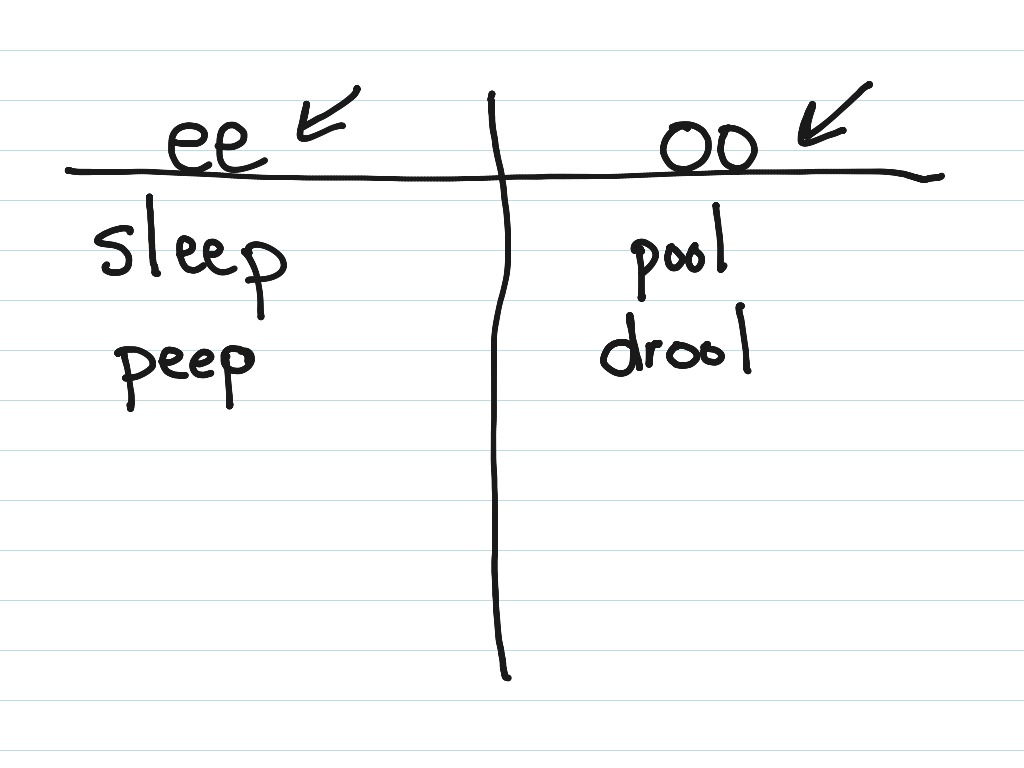 ee oo
sleep pool
peep drool